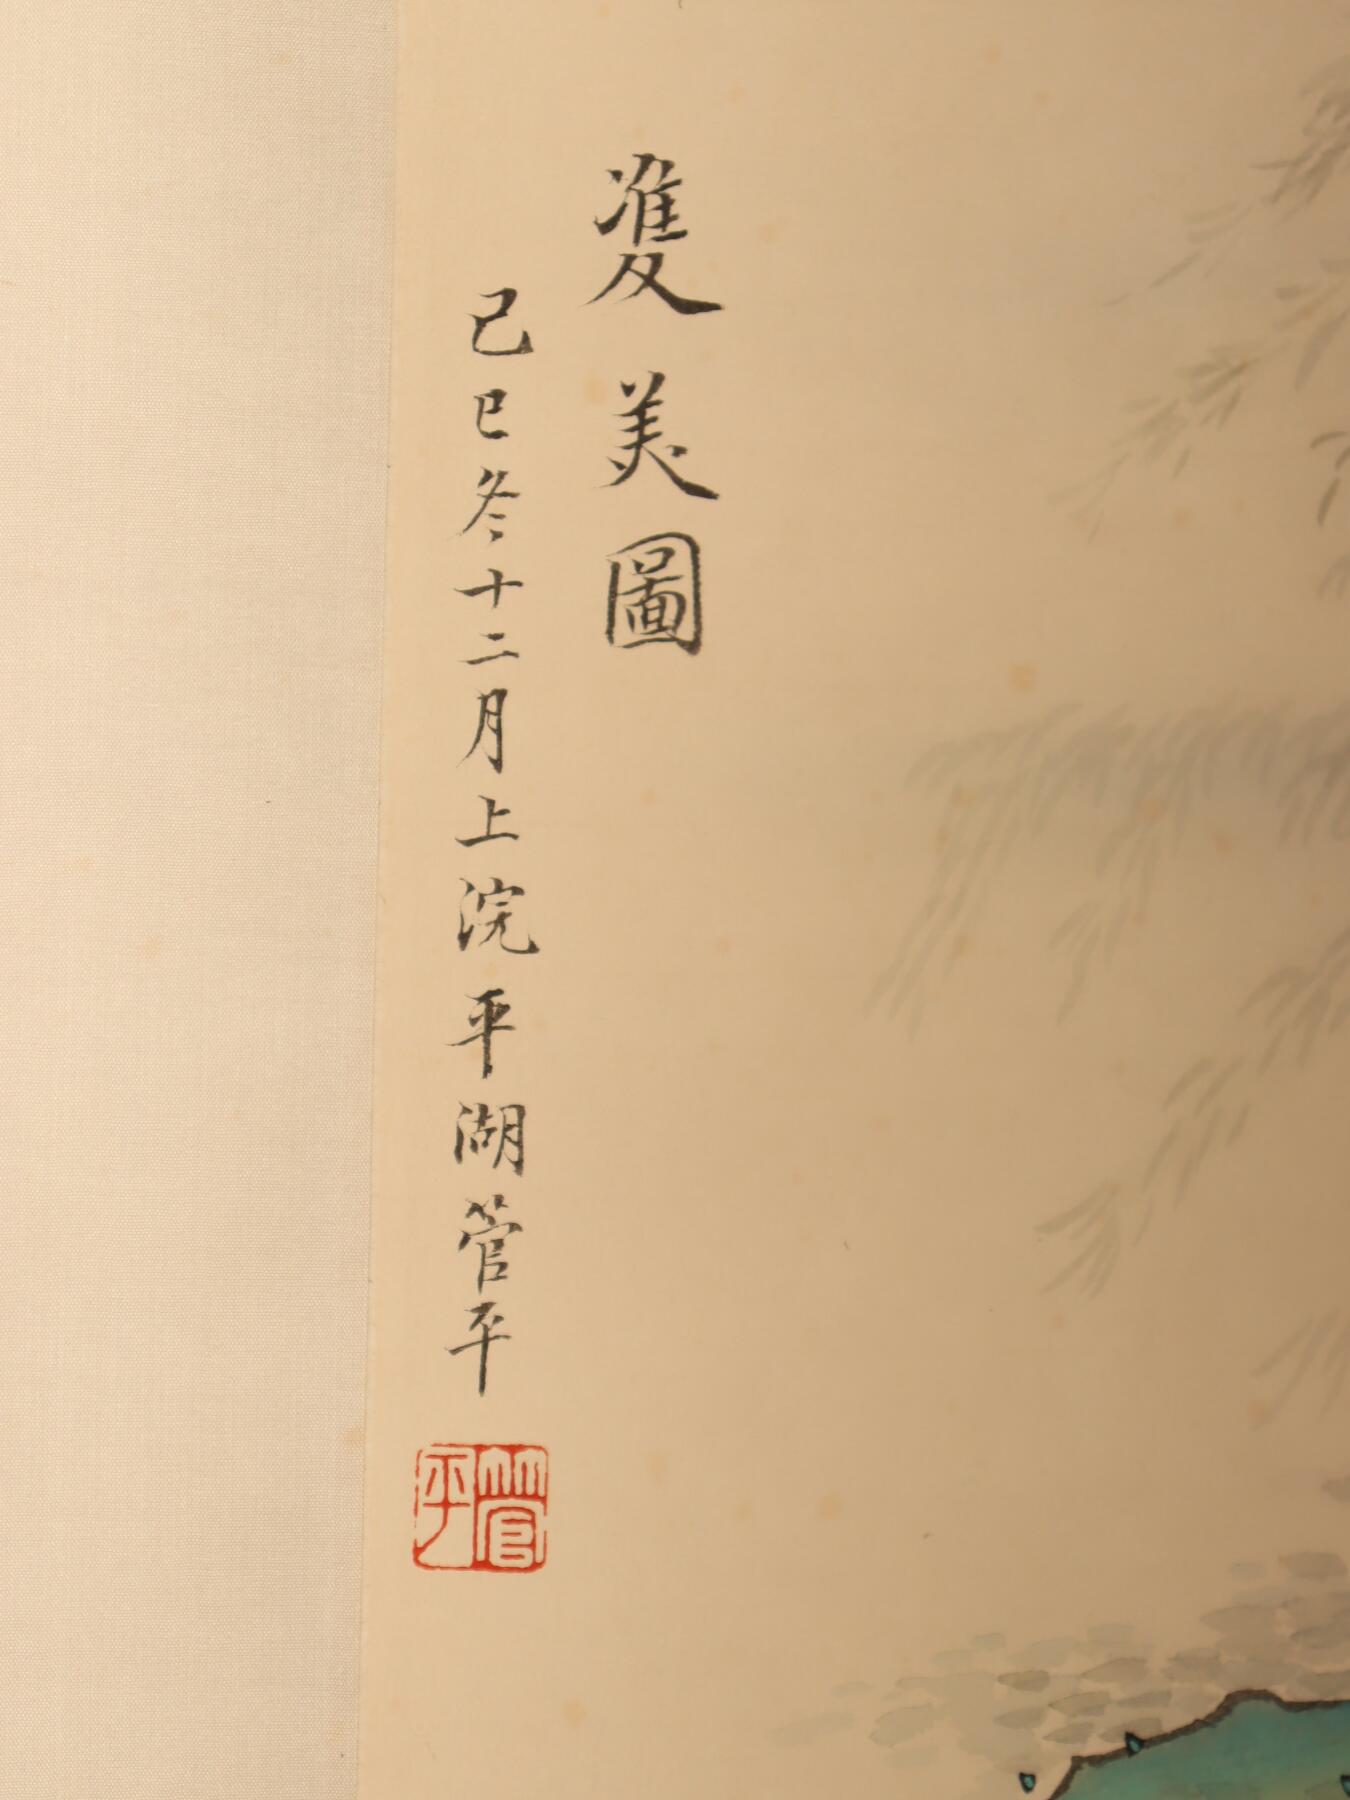 雙美圖
己巳冬十二月上浣平湖管平
管平